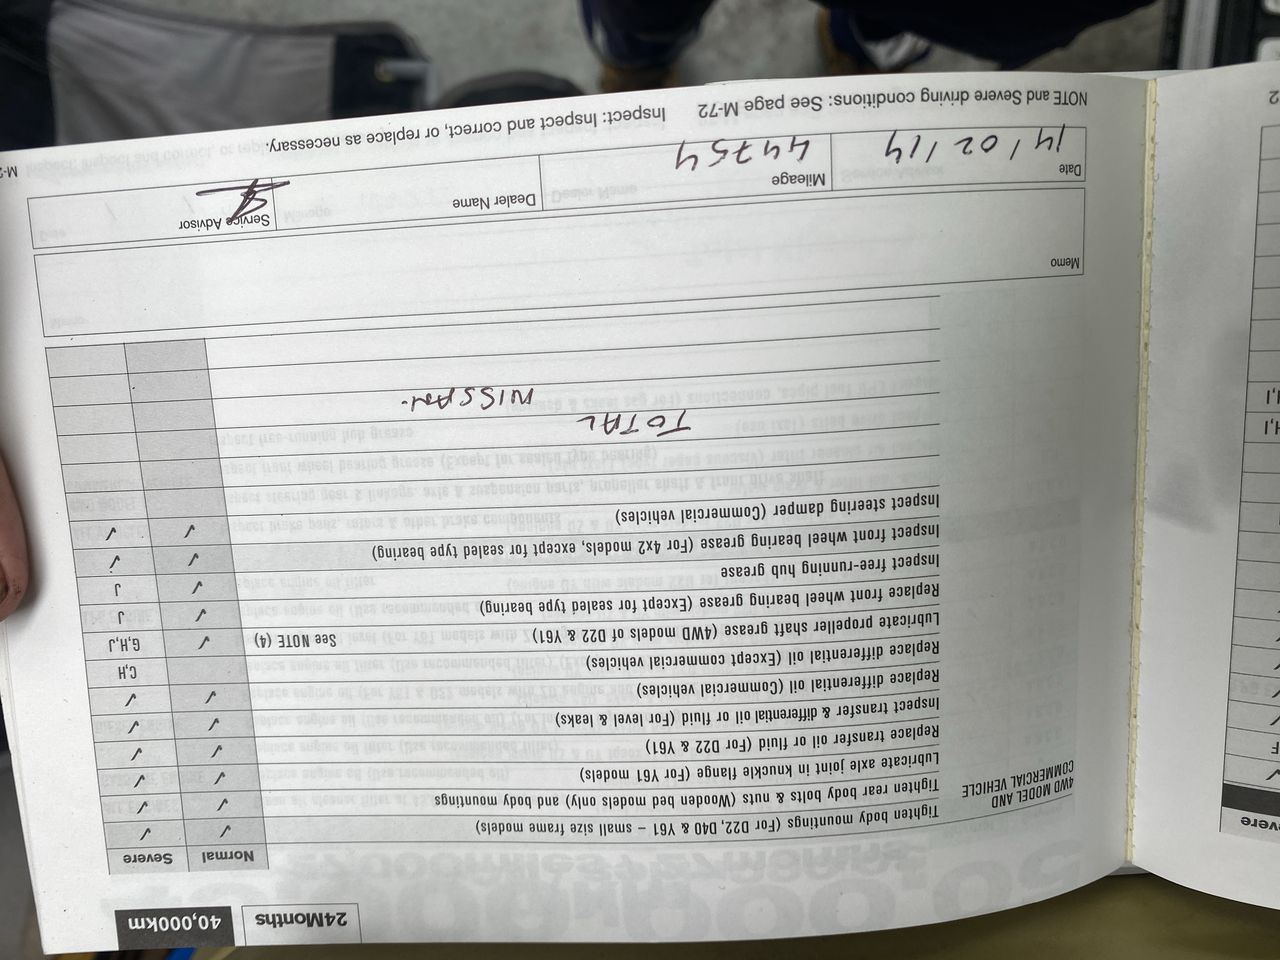 24Months 40,000km
Normal Severe
4WD MODEL AND
COMMERCIAL VEHICLE
Tighten body mountings (For D22, D40 & Y61 – small size frame models) ✓ ✓
Tighten rear body bolts & nuts (Wooden bed models only) and body mountings ✓ ✓
Lubricate axle joint in knuckle flange (For Y61 models) ✓ ✓
Replace transfer oil or fluid (For D22 & Y61) ✓ ✓
Inspect transfer & differential oil or fluid (For level & leaks) ✓ ✓
Replace differential oil (Commercial vehicles) ✓ ✓
Replace differential oil (Except commercial vehicles) C,H
Lubricate propeller shaft grease (4WD models of D22 & Y61) See NOTE (4) ✓ G,H,J
Replace front wheel bearing grease (Except for sealed type bearing) ✓ J
Inspect free-running hub grease ✓ J
Inspect front wheel bearing grease (For 4x2 models, except for sealed type bearing) ✓ ✓
Inspect steering damper (Commercial vehicles) ✓ ✓
TOTAL
NISSAN.
Memo
Date 14/02/14 Mileage 44754 Dealer Name Service Advisor
NOTE and Severe driving conditions: See page M-72 Inspect: Inspect and correct, or replace as necessary.